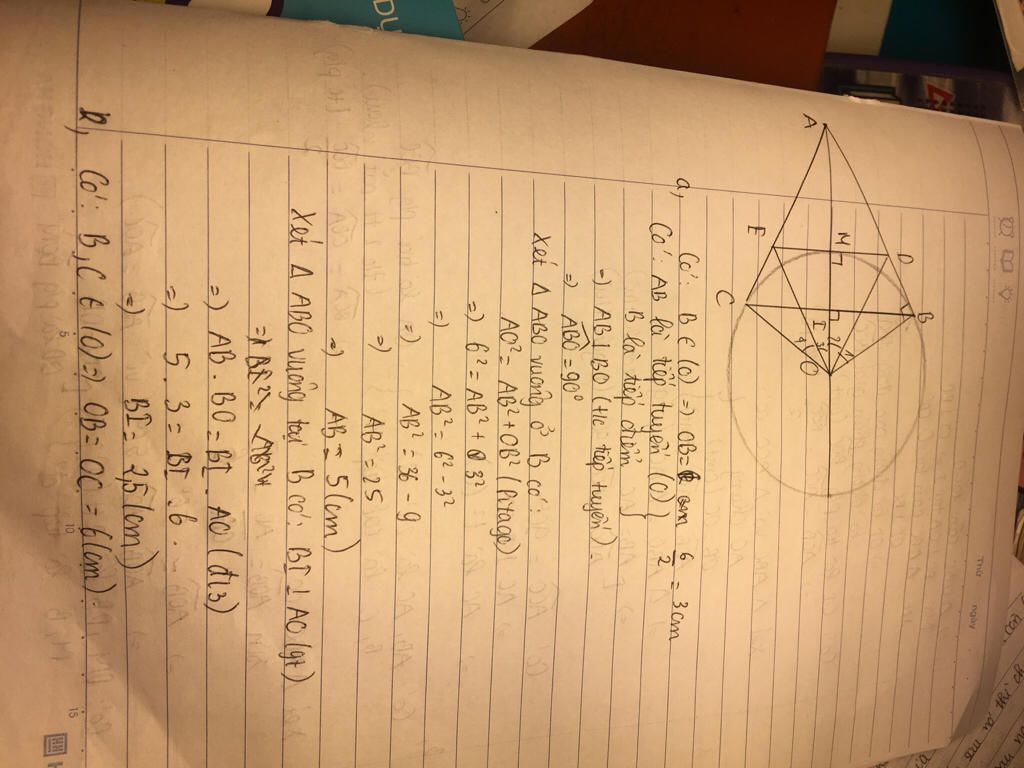 DU
Thứ
ngày
A
B
C
D
E
M
I
O
1
2
3
4
a, Có: B ∈ (O) => OB = 6/2 = 3cm
Có: AB là tiếp tuyến (O) }
B là tiếp điểm }
=) AB ⊥ BO (t/c tiếp tuyến)
=) ABO = 90°
Xét Δ ABO vuông ở B có:
AO² = AB² + OB² (Pitago)
=) 6² = AB² + 3²
=) AB² = 6² - 3²
=) AB² = 36 - 9
=) AB² = 25
=) AB = 5 (cm)
Xét Δ ABO vuông tại B có: BI ⊥ AO (gt)
=) AB . BO = BI . AO (đl 3)
=) 5 . 3 = BI . 6
=) BI = 2,5 (cm)
b, Có: B, C ∈ (O) => OB = OC = 6 (cm)
5
10
15